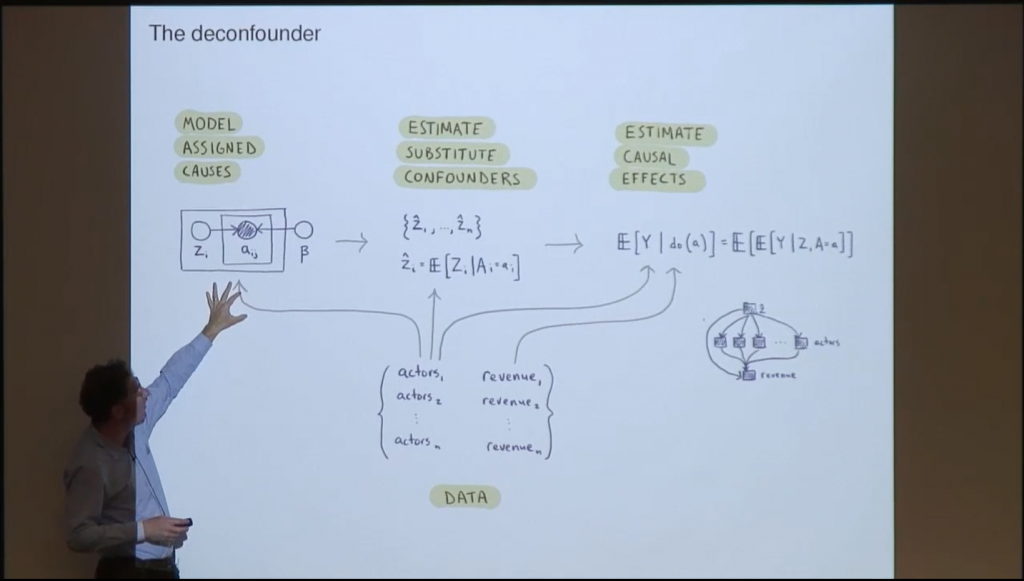 The deconfounder
MODEL
ASSIGNED
CAUSES
ESTIMATE
SUBSTITUTE
CONFOUNDERS
ESTIMATE
CAUSAL
EFFECTS
Zᵢ aᵢⱼ β
{ẑ₁,...,ẑₙ}
ẑᵢ = 𝔼[Zᵢ|Aᵢ=aᵢ]
𝔼[Y|do(a)] = 𝔼[𝔼[Y|Z,A=a]]
ẑ
... actors
revenue
actors₁ revenue₁
actors₂ revenue₂
⋮ ⋮
actorsₙ revenueₙ
DATA